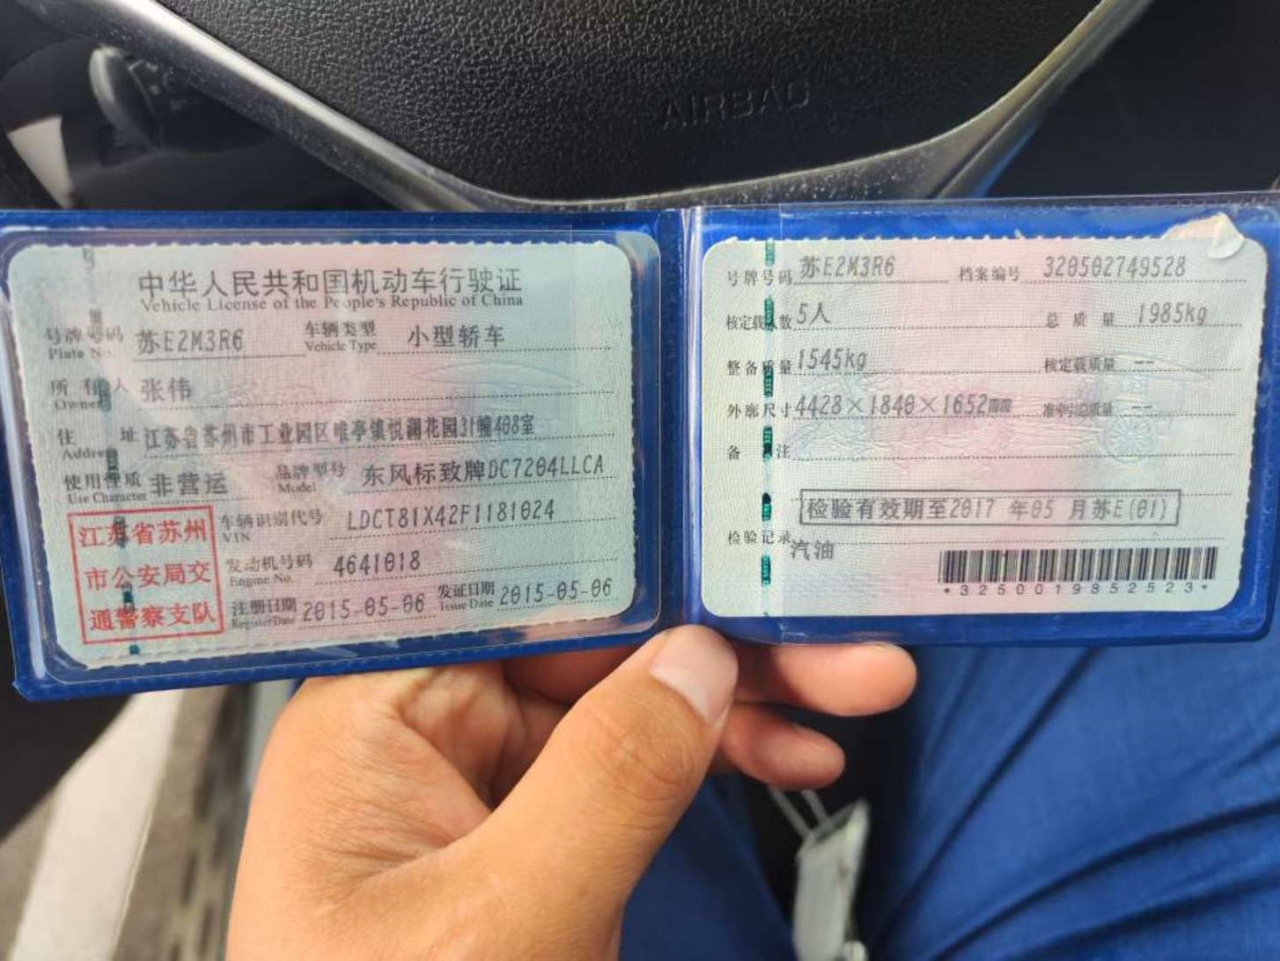 AIRBAG
中华人民共和国机动车行驶证
Vehicle License of the People's Republic of China
号牌号码 苏E2M3R6 车辆类型 小型轿车
Plate No. Vehicle Type
所有人 张伟
Owner
住址 江苏省苏州市工业园区唯亭镇悦澜花园31幢408室
Address
使用性质 非营运 品牌型号 东风标致牌DC7204LLCA
Use Character Model
江苏省苏州
市公安局交
通警察支队
车辆识别代号 LDCT81X42F1181024
VIN
发动机号码 4641018
Engine No.
注册日期 2015-05-06 发证日期 2015-05-06
Register Date Issue Date
号牌号码 苏E2M3R6 档案编号 320502749528
核定载人数 5人 总质量 1985kg
整备质量 1545kg 核定载质量 --
外廓尺寸 4428×1840×1652mm 准牵引总质量 --
备注
检验有效期至2017 年05 月苏E(01)
检验记录
汽油
*3250019852523*